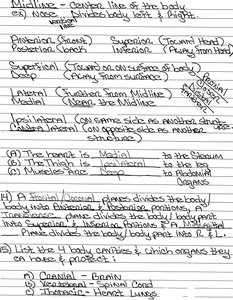 Midline - Center line of the body
Ex) Nose divides body left & Right.
Anterior (Front) Superior (Toward Head)
Posterior (back) Inferior (Away From Head)
Superficial (Toward or on surface of body)
Deep (Away From surface)
Lateral (Further From Midline)
Medial (Near the Midline)
Ipsilateral (on same side as another structure)
Contralateral (on opposite side as another
structure)
(A) The heart is Medial to the Sternum
(B) The Thigh is Ipsilateral to the leg
(C) Muscles Are Deep to Abdominal
Organs
14) A Frontal/Coronal plane divides the body/
body into Anterior & Posterior portions, A
Transverse plane divides the body/body part
into Superior & Inferior portions & A Midsagittal
divides the body/body part into R & L.
15) List the 4 body cavities & which organs they
house & protect:
a) Cranial - Brain
b) Vertebral - Spinal Cord
c) Thoracic - Heart Lungs